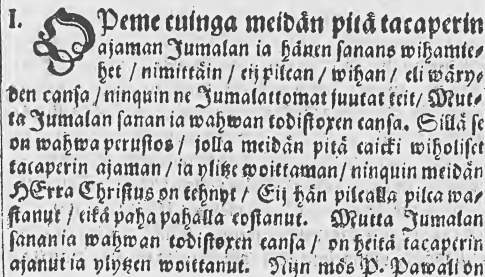 I. OPeme cuinga meidän pitä tacaperin
ajaman Jumalan ia hänen sanans wihamie⸗
het / nimittäin / eij pilcan / wihan / eli wäry⸗
den cansa / ninquin ne Jumalattomat juutat teit / Mut⸗
ta Jumalan sanan ia wahwan todistoxen cansa. Sillä se
on wahwa perustos / jolla meidän pitä caicki wiholiset
tacaperin ajaman / ia ylitze woittaman / ninquin meidän
HErra Christus on tehnyt / Eij hän pilcalla pilca wa⸗
stanut / eikä paha pahalla costanut. Mutta Jumalan
sanan ia wahwan todistoxen cansa / on heitä tacaperin
ajanut ia ylytzen woittanut. Nijn mös P. Pawali on